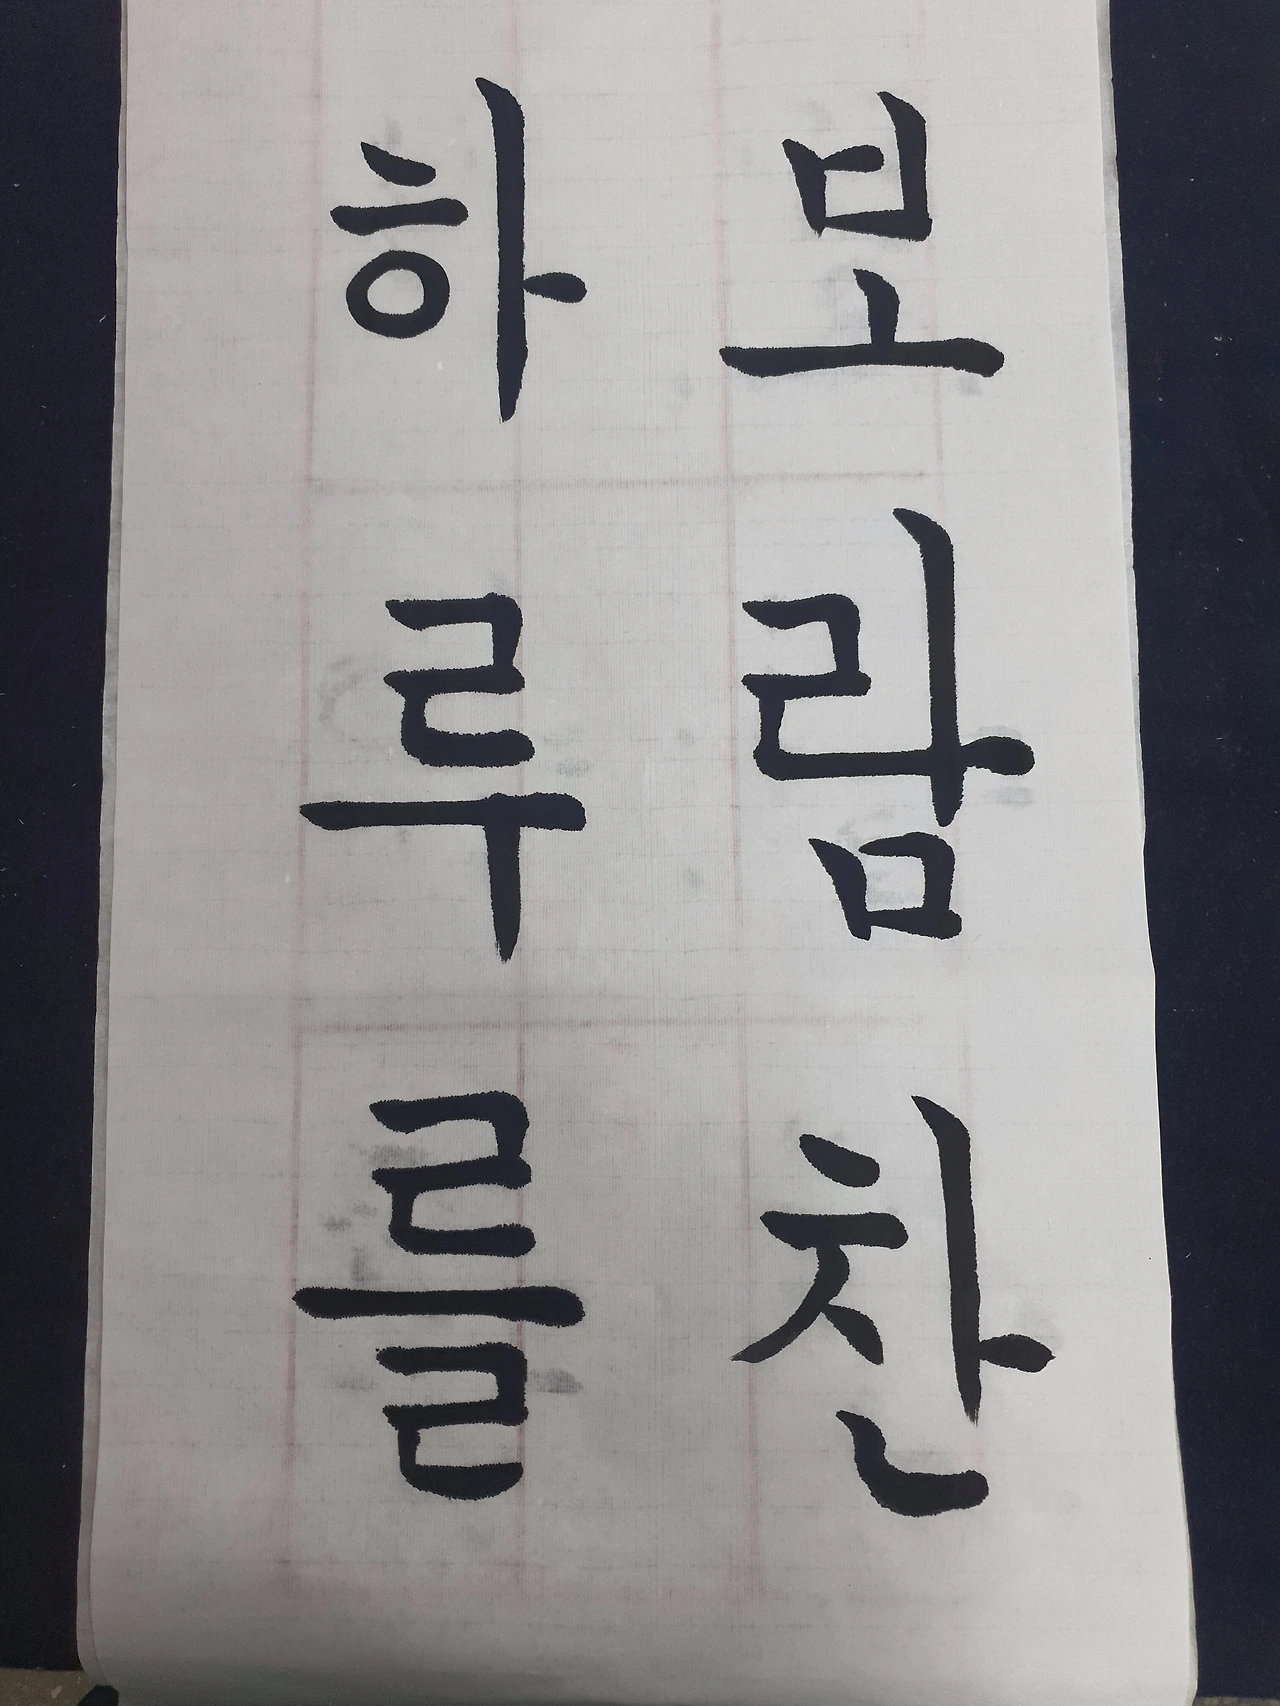 보람찬
하루를